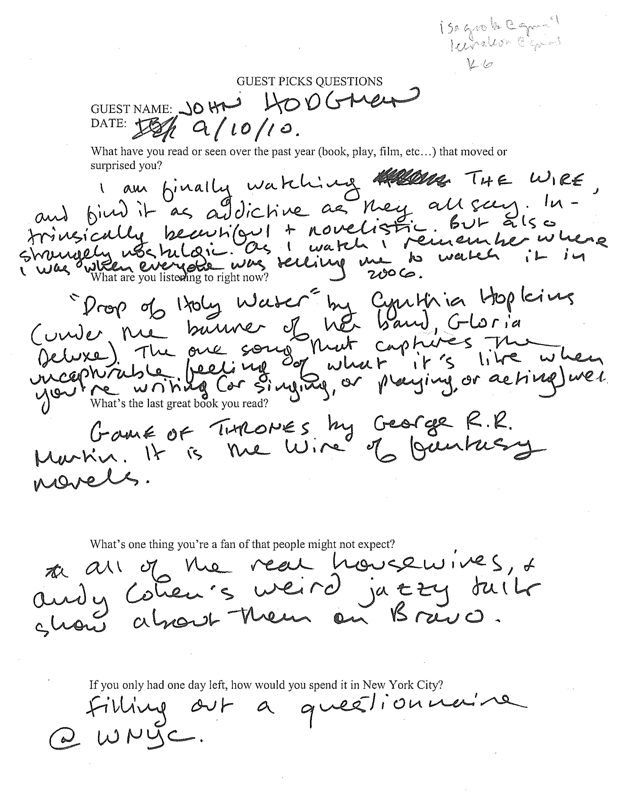 K6
GUEST PICKS QUESTIONS
GUEST NAME: JOHN HODGMAN
DATE: 9/10/10.
What have you read or seen over the past year (book, play, film, etc…) that moved or
surprised you?
I am finally watching THE WIRE,
and find it as addictive as they all say. In-
trinsically beautiful + novelistic. But also
strangely nostalgic. As I watch I remember where
I was when everyone was telling me to watch it in
2006.
What are you listening to right now?
"Drop of Holy Water" by Cynthia Hopkins
(under the banner of her band, Gloria
Deluxe). The one song that captures the
uncapturable feeling of what it's like when
you're writing (or singing, or playing, or acting) well.
What's the last great book you read?
GAME OF THRONES by George R.R.
Martin. It is the Wire of fantasy
novels.
What's one thing you're a fan of that people might not expect?
all of the real housewives, +
andy Cohen's weird jazzy talk
show about them on Bravo.
If you only had one day left, how would you spend it in New York City?
filling out a questionnaire
@ WNYC.